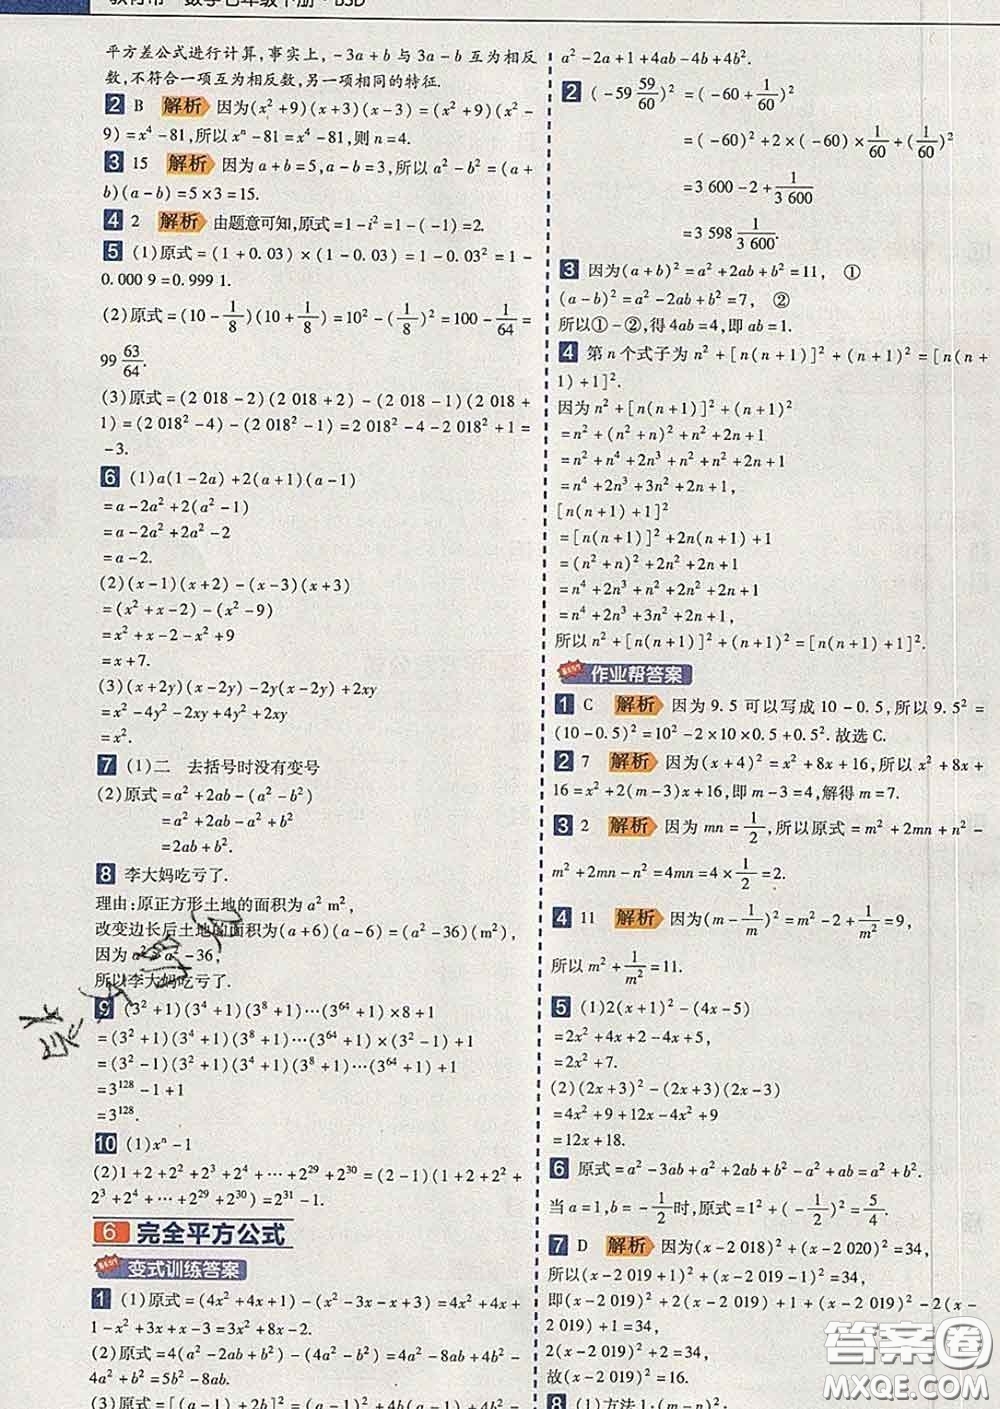 教育帮·数学七年级下册·BSD
平方差公式进行计算,事实上,-3a+b与3a-b互为相反
数,不符合一项互为相反数,另一项相同的特征.
2 B 解析 因为(x²+9)(x+3)(x-3)=(x²+9)(x²-
9)=x⁴-81,所以xⁿ-81=x⁴-81,则n=4.
3 15 解析 因为a+b=5,a-b=3,所以a²-b²=(a+
b)(a-b)=5×3=15.
4 2 解析 由题意可知,原式=1-i²=1-(-1)=2.
5 (1)原式=(1+0.03)×(1-0.03)=1-0.03²=1-
0.000 9=0.999 1.
(2)原式=(10-1/8)(10+1/8)=10²-(1/8)²=100-1/64=
99 63/64.
(3)原式=(2 018-2)(2 018+2)-(2 018-1)(2 018+
1)=(2 018²-4)-(2 018²-1)=2 018²-4-2 018²+1=
-3.
6 (1)a(1-2a)+2(a+1)(a-1)
=a-2a²+2(a²-1)
=a-2a²+2a²-2
=a-2.
(2)(x-1)(x+2)-(x-3)(x+3)
=(x²+x-2)-(x²-9)
=x²+x-2-x²+9
=x+7.
(3)(x+2y)(x-2y)-2y(x-2y)+2xy
=x²-4y²-2xy+4y²+2xy
=x².
7 (1)二 去括号时没有变号
(2)原式=a²+2ab-(a²-b²)
=a²+2ab-a²+b²
=2ab+b².
8 李大妈吃亏了.
理由:原正方形土地的面积为a² m²,
改变边长后土地的面积为(a+6)(a-6)=(a²-36)(m²),
因为a²>a²-36,
所以李大妈吃亏了.
9 (3²+1)(3⁴+1)(3⁸+1)…(3⁶⁴+1)×8+1
=(3²+1)(3⁴+1)(3⁸+1)…(3⁶⁴+1)×(3²-1)+1
=(3²-1)(3²+1)(3⁴+1)(3⁸+1)…(3⁶⁴+1)+1
=3¹²⁸-1+1
=3¹²⁸.
10 (1)xⁿ-1
(2)1+2+2²+2³+2⁴+…+2²⁹+2³⁰=(2-1)(1+2+2²+
2³+2⁴+…+2²⁹+2³⁰)=2³¹-1.
6 完全平方公式
变式训练答案
1 (1)原式=(4x²+4x+1)-(x²-3x-x+3)=4x²+4x+
1-x²+3x+x-3=3x²+8x-2.
(2)原式=4(a²-2ab+b²)-(4a²-b²)=4a²-8ab+4b²-
4a²+b²=5b²-8ab.
(3)原式=[(-a+1)+2b]²=(-a+1)²+4b(-a+1)+4b²=
a²-2a+1+4ab-4b+4b².
2 (-59 59/60)²=(-60+1/60)²
=(-60)²+2×(-60)×1/60+(1/60)²
=3 600-2+1/3 600
=3 598 1/3 600.
3 因为(a+b)²=a²+2ab+b²=11, ①
(a-b)²=a²-2ab+b²=7, ②
所以①-②,得4ab=4,即ab=1.
4 第n个式子为n²+[n(n+1)]²+(n+1)²=[n(n+
1)+1]².
因为n²+[n(n+1)]²+(n+1)²
=n²+(n²+n)²+n²+2n+1
=n²+n⁴+2n³+n²+n²+2n+1
=n⁴+2n³+3n²+2n+1,
[n(n+1)+1]²
=[n(n+1)]²+2n(n+1)+1
=(n²+n)²+2n²+2n+1
=n⁴+2n³+n²+2n²+2n+1
=n⁴+2n³+3n²+2n+1,
所以n²+[n(n+1)]²+(n+1)²=[n(n+1)+1]².
作业帮答案
1 C 解析 因为9.5可以写成10-0.5,所以9.5²=
(10-0.5)²=10²-2×10×0.5+0.5².故选C.
2 7 解析 因为(x+4)²=x²+8x+16,所以x²+8x+
16=x²+2(m-3)x+16,即m-3=4,解得m=7.
3 2 解析 因为mn=1/2,所以原式=m²+2mn+n²-
m²+2mn-n²=4mn=4×1/2=2.
4 11 解析 因为(m-1/m)²=m²-2+1/m²=9,
所以m²+1/m²=11.
5 (1)2(x+1)²-(4x-5)
=2x²+4x+2-4x+5,
=2x²+7.
(2)(2x+3)²-(2x+3)(2x-3)
=4x²+9+12x-4x²+9
=12x+18.
6 原式=a²-3ab+a²+2ab+b²-a²+ab=a²+b².
当a=1,b=-1/2时,原式=1²+(-1/2)²=5/4.
7 D 解析 因为(x-2 018)²+(x-2 020)²=34,
所以(x-2 019+1)²+(x-2 019-1)²=34,
即(x-2 019)²+2(x-2 019)+1+(x-2 019)²-2(x-
2 019)+1=34,
2(x-2 019)²+2=34,
故(x-2 019)²=16.
8 (1)方法1:(m-n)².
答案圈
MXQE.COM